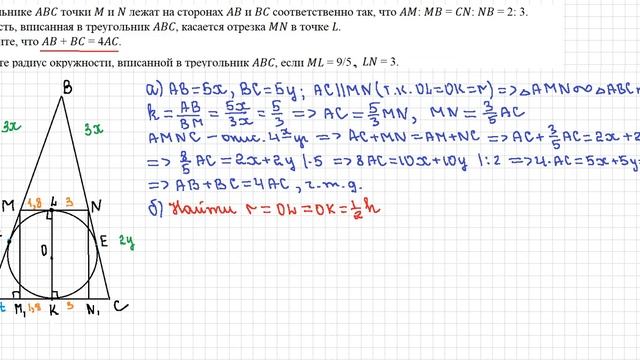 ьнике ABC точки M и N лежат на сторонах AB и BC соответственно так, что AM: MB = CN: NB = 2: 3.
сть, вписанная в треугольник ABC, касается отрезка MN в точке L.
ите, что AB + BC = 4AC.
те радиус окружности, вписанной в треугольник ABC, если ML = 9/5, LN = 3.
а) AB=5x, BC=5y; AC||MN (т.к. OL=OK=r) => △AMN ∾ △ABC
k = AB/BM = 5x/3x = 5/3 => AC = 5/3 MN, MN = 3/5 AC
AMNC – опис. 4-х уг => AC+MN=AM+NC => AC+3/5 AC=2x+2
=> 8/5 AC = 2x+2y |·5 => 8AC=10x+10y |:2 => 4·AC=5x+5y=
=> AB+BC=4AC, ч.т.д.
б) Найти r=OL=OK=1/2 h
B
3x
3x
M 1,8 L 3 N
O
E 2y
M₁ 1,8 K 3 N₁ C